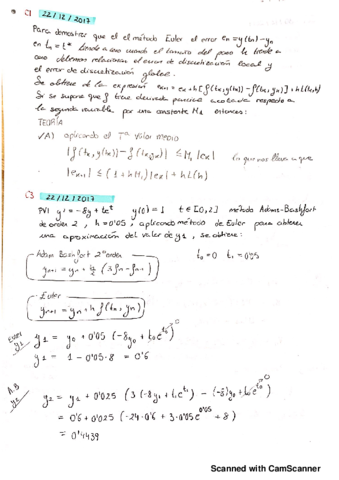 C1 22/12/2017
Para demostrar que el el método Euler el error en = y(tn) - yn
en tn = t* tiende a cero cuando el tamaño del paso h tiende a
cero debemos relacionar el error de discretización local y
el error de discretización global.
Se obtiene de la expresión en+1 = en + h[f(tn, y(tn)) - f(tn, yn)] + hL(h)
Si se supone que f tiene derivada parcial acotada respecto a
la segunda variable por una constante M1 entonces:
TEORÍA
√A) aplicando el Tª Valor medio
|f(tn, y(tn)) - f(tn, yn)| ≤ M1 |en| lo que nos lleva a que
|en+1| ≤ (1 + hM1)|en| + hL(h)
C3 22/12/2017
PVI y' = -8y + te^t y(0) = 1 t ∈ [0,2] método Adams-Bashfort
de orden 2, h = 0'05, aplicando método de Euler para obtener
una aproximación del valor de y1, se obtiene:
Adam Bashfort 2º orden
yn+1 = yn + h/2 (3fn - fn-1)
t0 = 0 t1 = 0'05
Euler
yn+1 = yn + h f(tn, yn)
Euler y1
y1 = y0 + 0'05 (-8y0 + t0e^t0) 0
y1 = 1 - 0'05·8 = 0'6
A.B y2
y2 = y1 + 0'025 (3(-8y1 + t1e^t1) - (-8)y0 + t0e^t0) 0
= 0'6 + 0'025 (-24·0'6 + 3·0'05e^0'05 + 8)
= 0'4439
Scanned with CamScanner